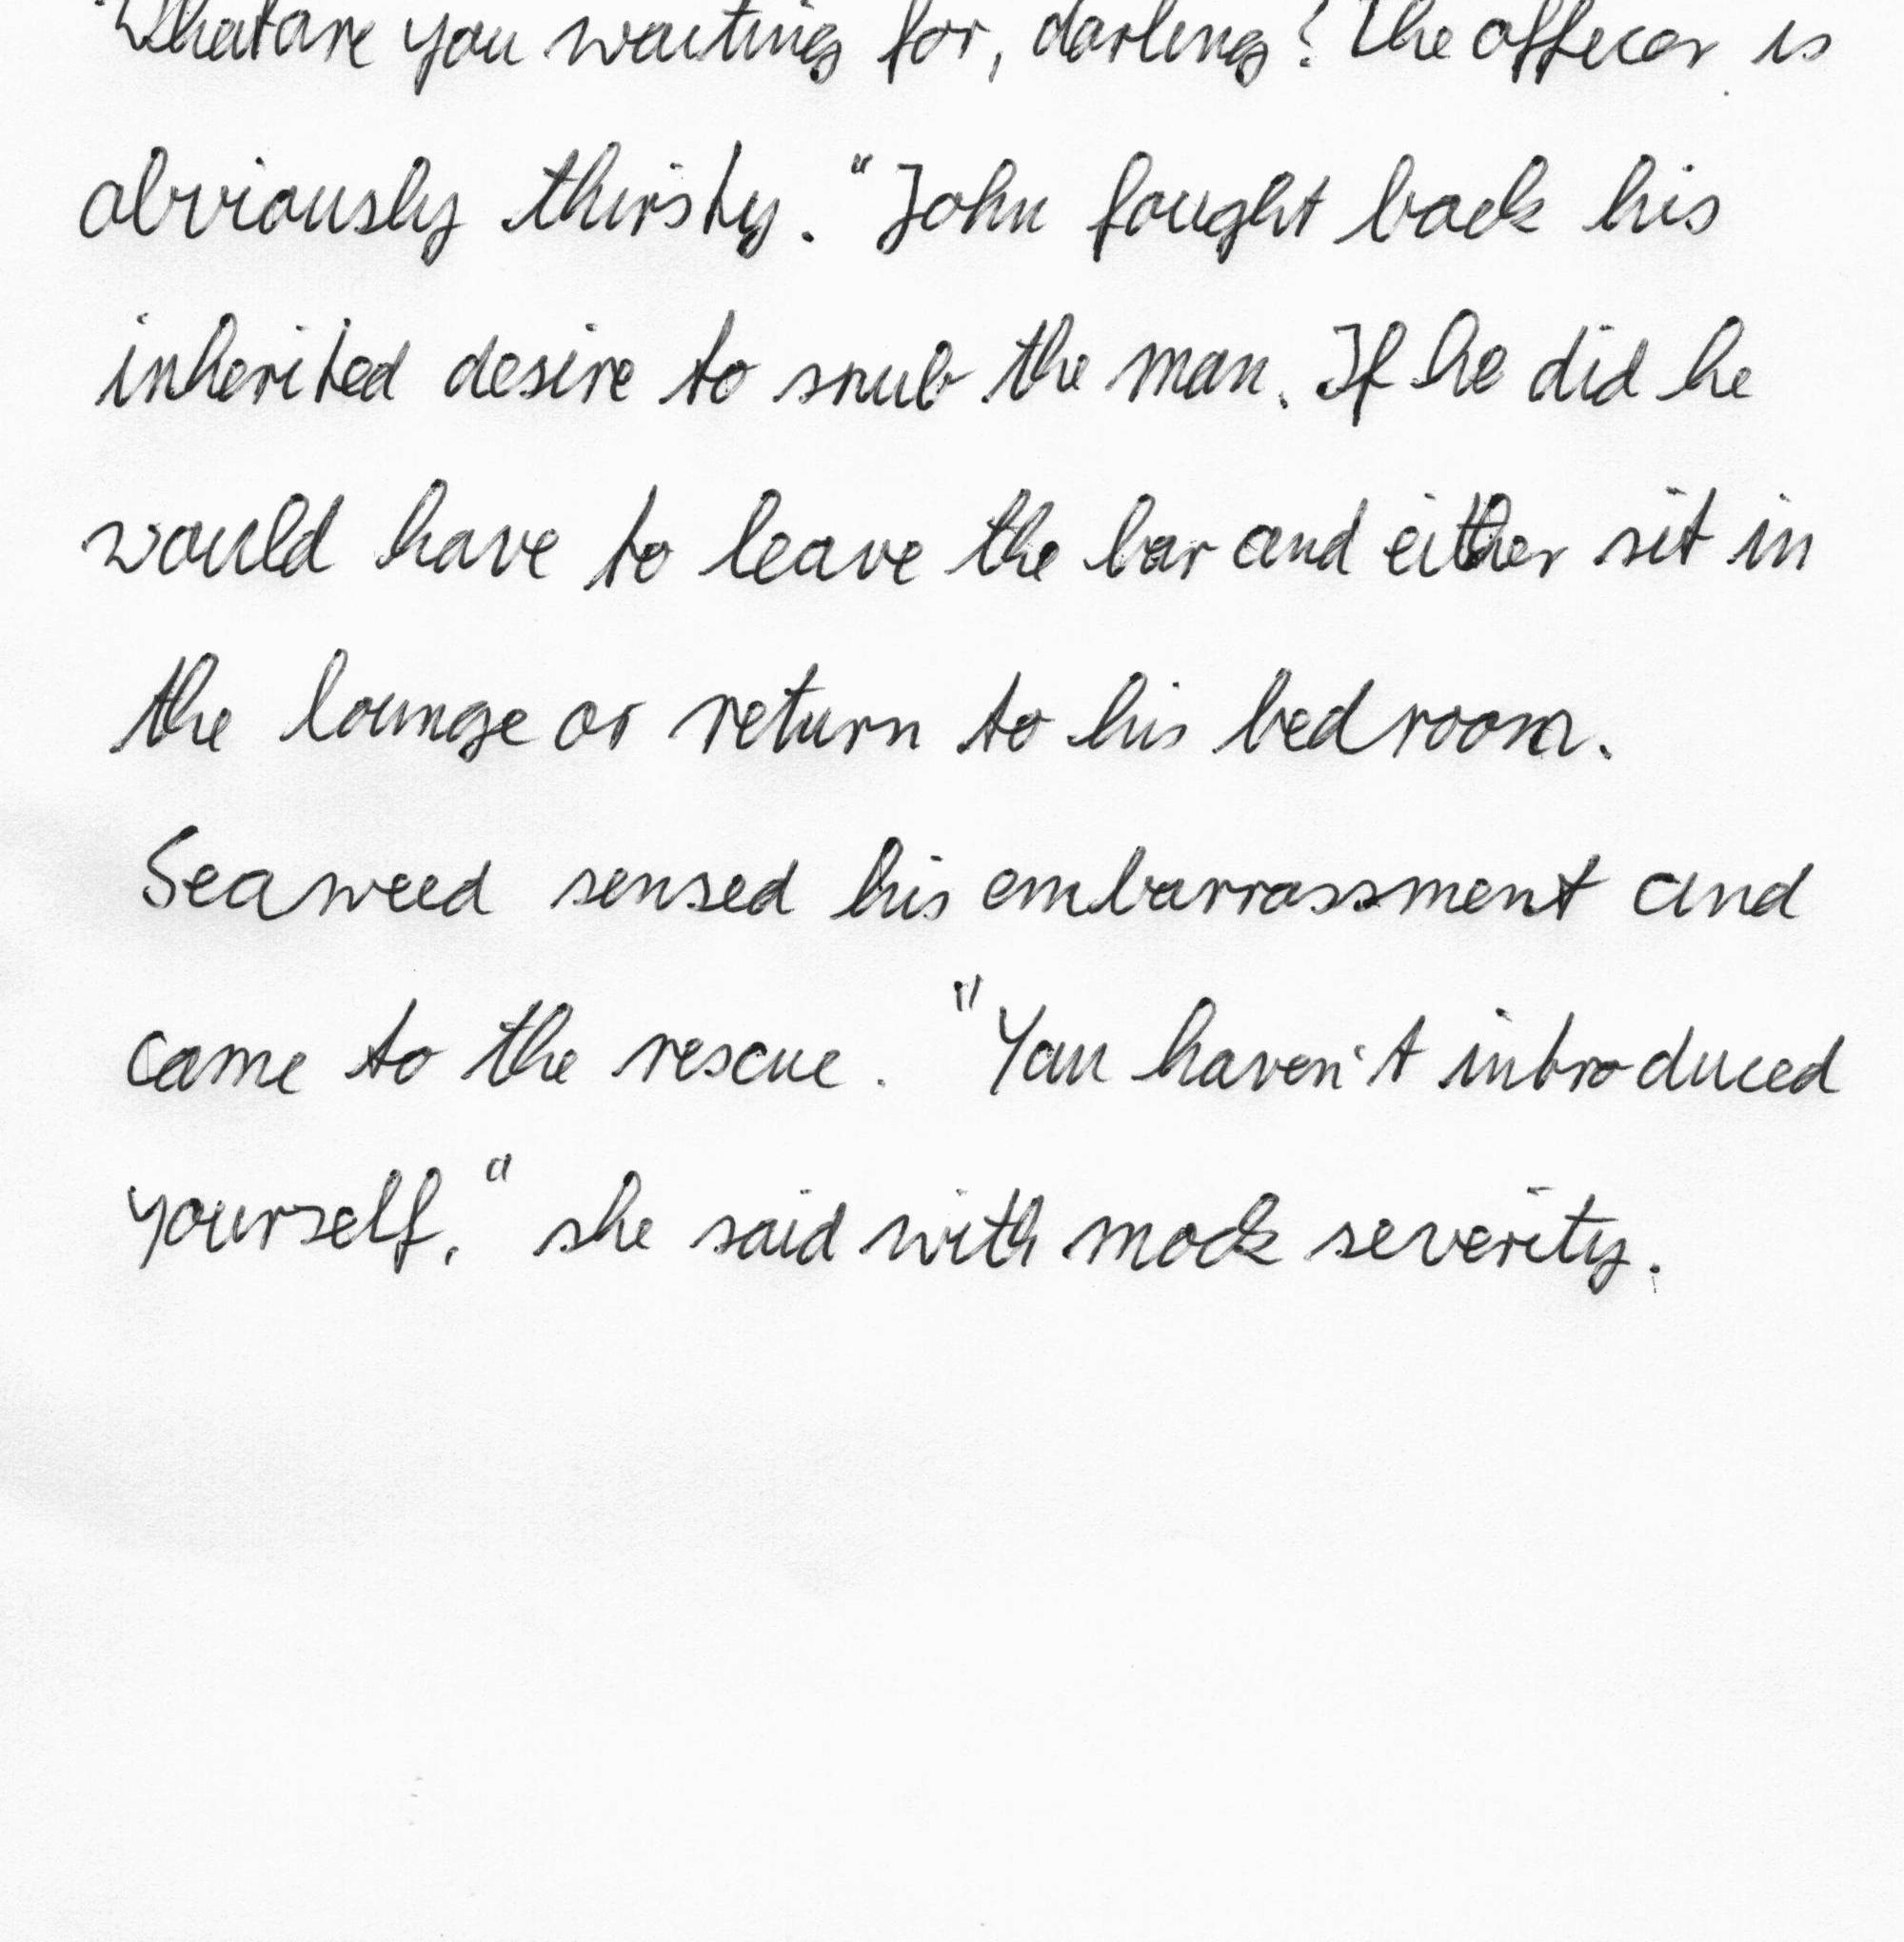 "What are you waiting for, darling? The officer is
obviously thirsty." John fought back his
inherited desire to snub the man. If he did he
would have to leave the bar and either sit in
the lounge or return to his bedroom.
Seaweed sensed his embarrassment and
came to the rescue. "You haven't introduced
yourself," she said with mock severity.